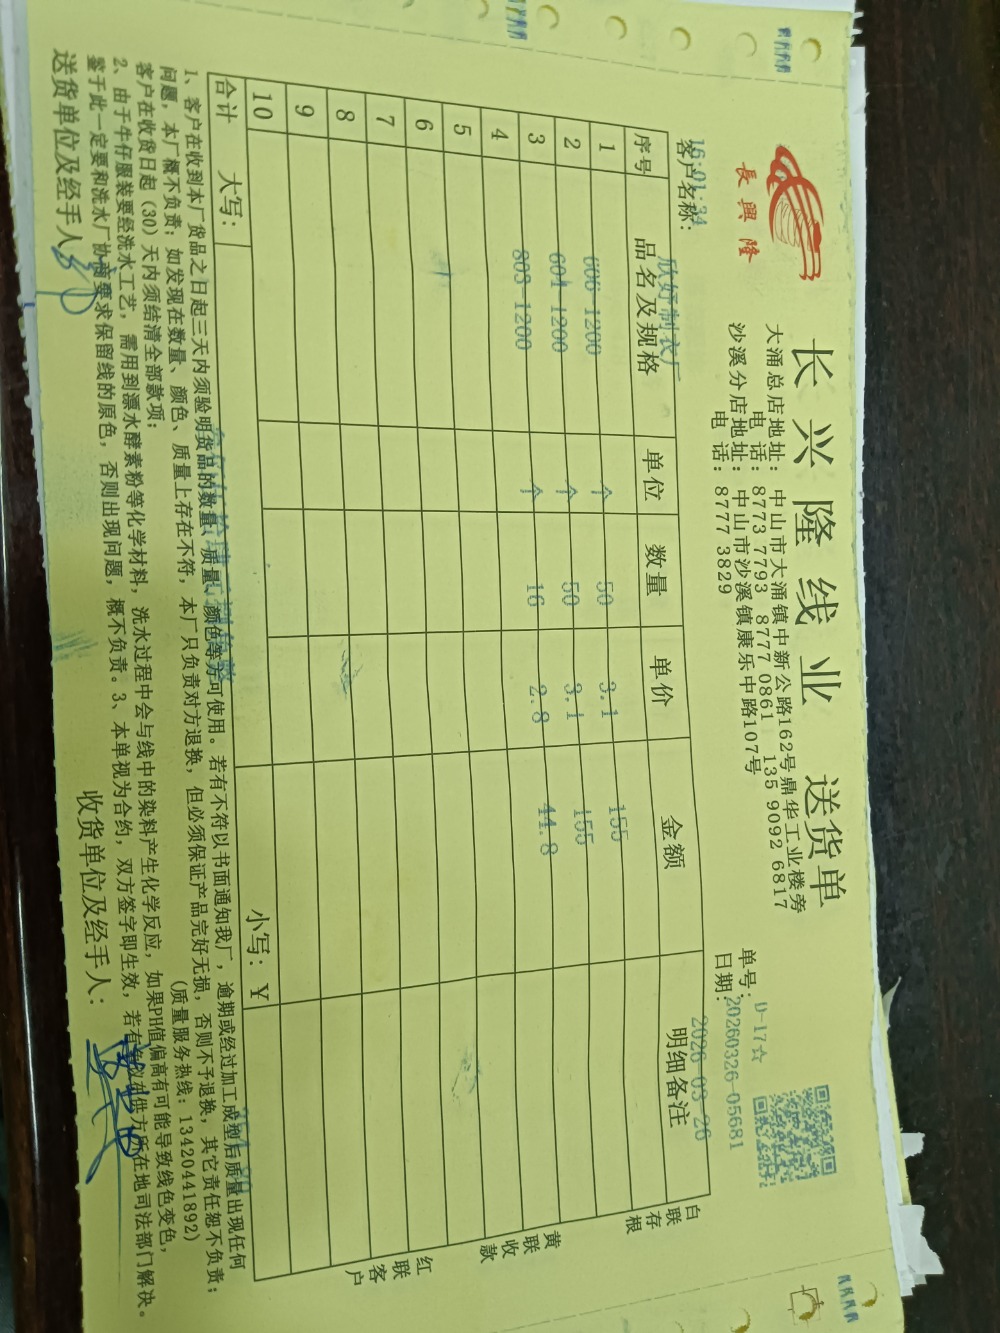 長興隆
长兴隆线业 送货单
大涌总店地址：中山市大涌镇中新公路162号鼎华工业楼旁
电话：8773 7793 8777 0861 135 9092 6817
沙溪分店地址：中山市沙溪镇康乐中路107号
电话：8777 3829
单号： D-17☆
日期： 20260326-05681
16:01:34
客户名称： 欣好制衣厂
2026-03-26
序号 品名及规格 单位 数量 单价 金额 明细备注
1 606 1200 个 50 3.1 155
2 604 1200 个 50 3.1 155
3 803 1200 个 16 2.8 44.8
4
5
6
7
8
9
10
合计 大写： 小写：￥
白联存根
黄联收款
红联客户
1、客户在收到本厂货品之日起三天内须验明货品的数量、质量、颜色等方可使用。若有不符以书面通知我厂，逾期或经过加工成型后质量出现任何
问题，本厂概不负责；如发现在数量、颜色、质量上存在不符，本厂只负责对方退换，但必须保证产品完好无损，否则不予退换，其它责任恕不负责；
客户在收货日起（30）天内须结清全部款项； (质量服务热线：13420441892)
2、由于牛仔服装要经洗水工艺，需用到漂水酵素粉等化学材料，洗水过程中会与线中的染料产生化学反应，如果PH值偏高有可能导致线色变色，
鉴于此一定要和洗水厂协商要求保留线的原色，否则出现问题，概不负责。3、本单视为合约，双方签字即生效，若有争议在供方所在地司法部门解决。
送货单位及经手人： 收货单位及经手人：